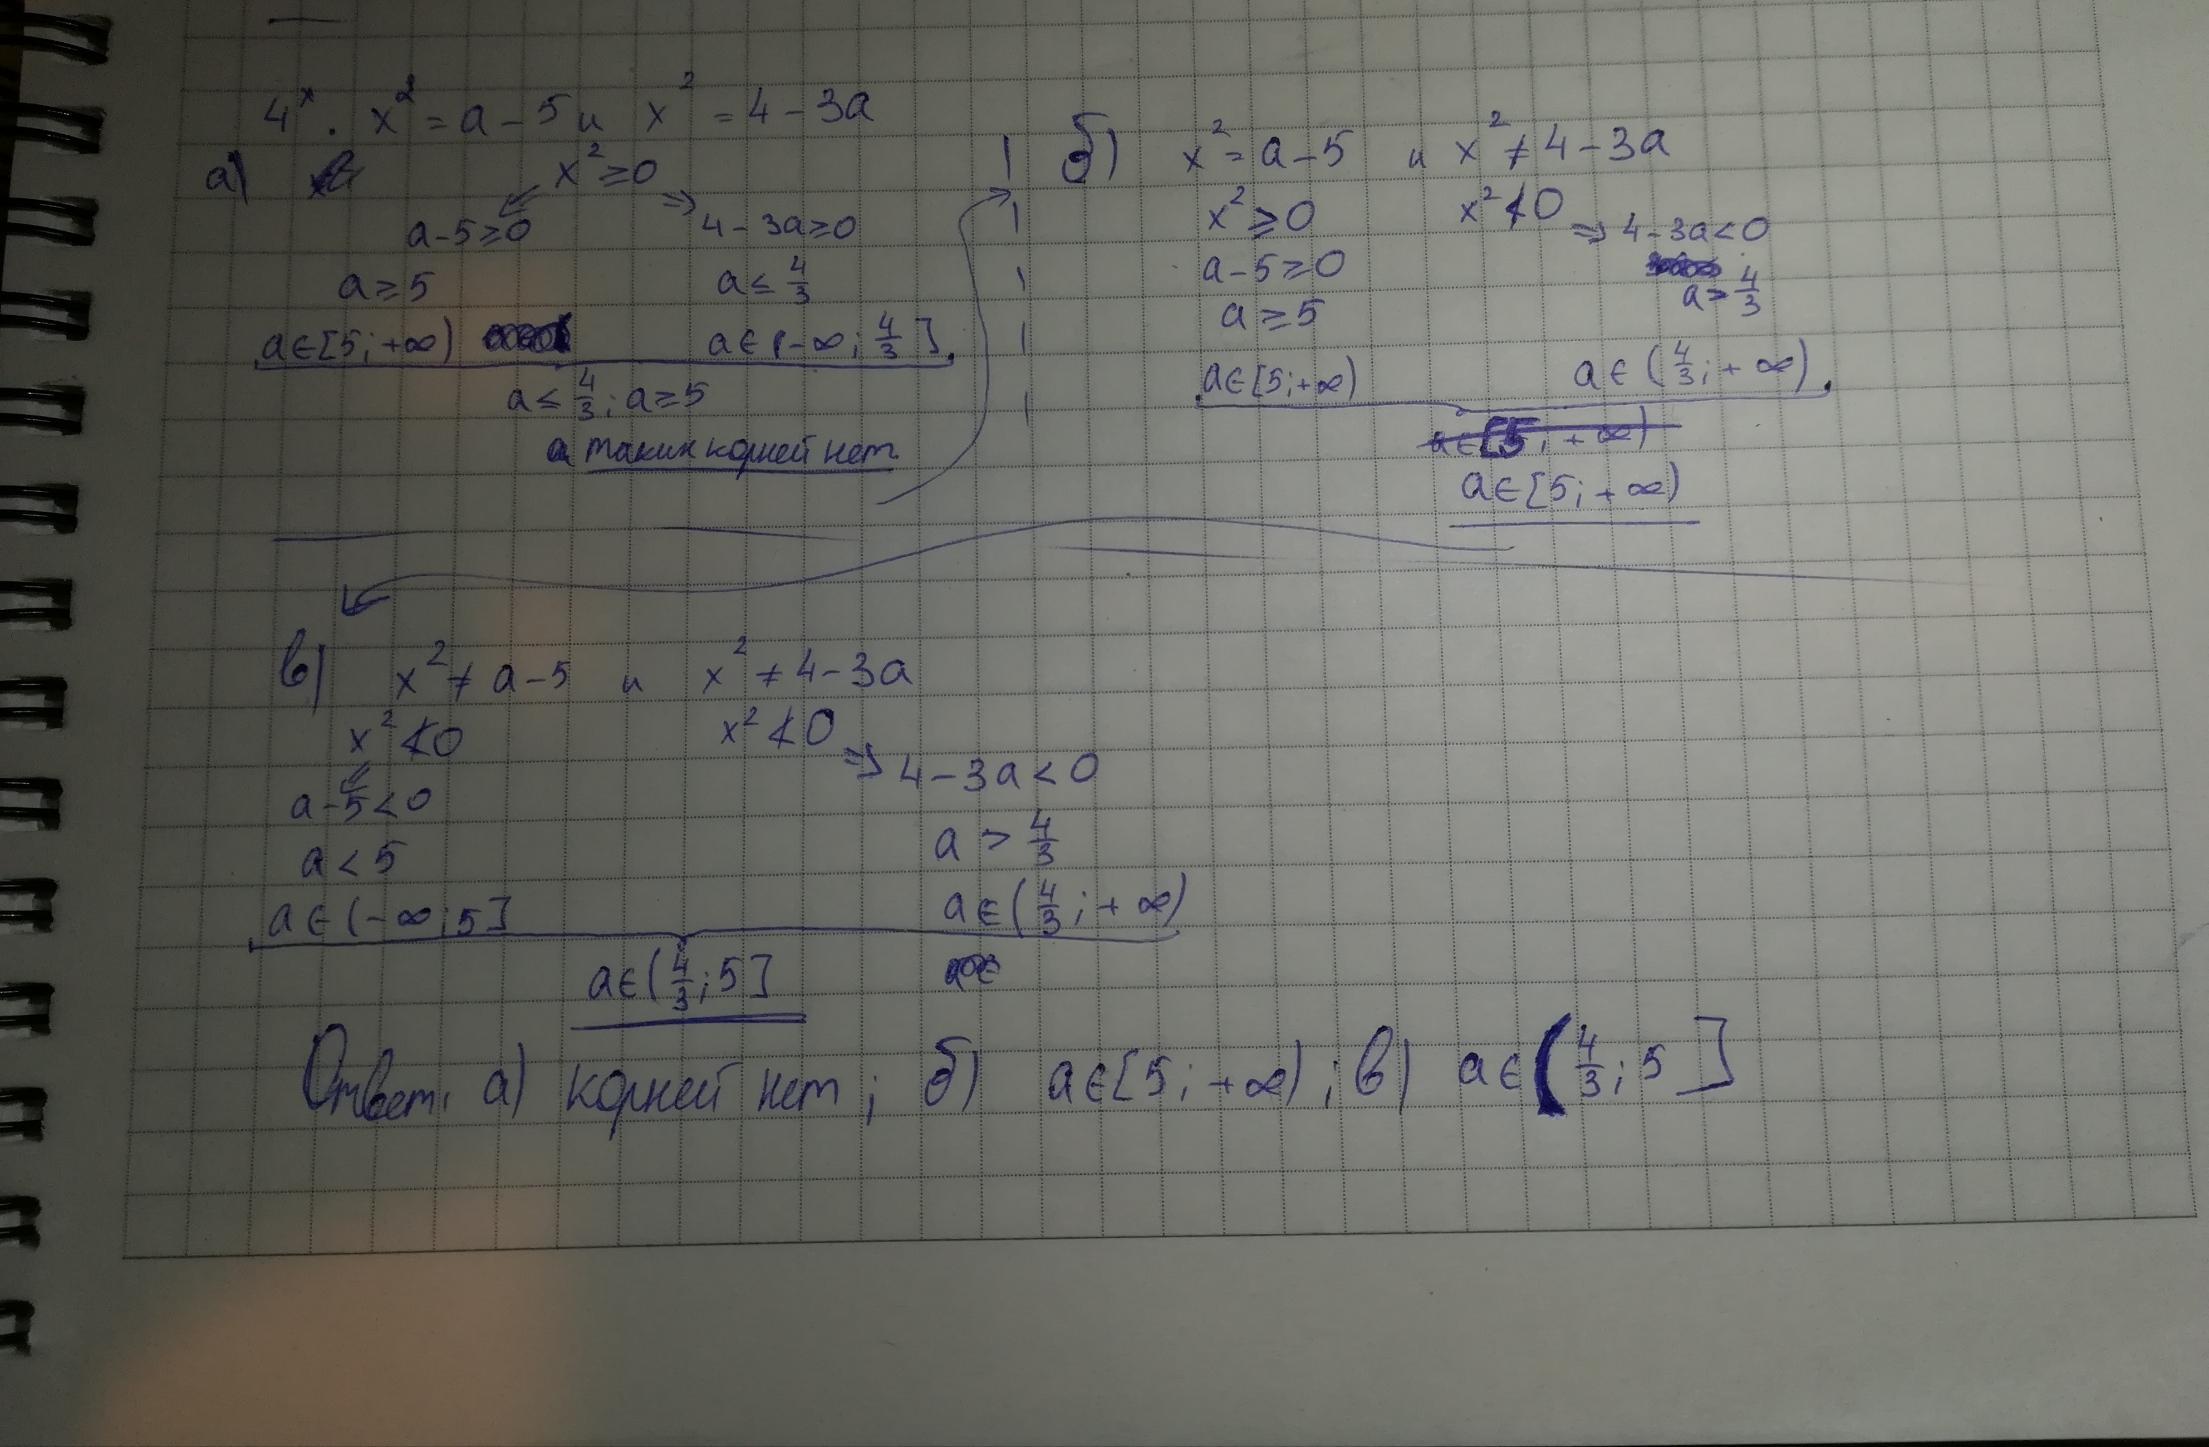 4ˣ. x² = a - 5 и x² = 4 - 3a
а) x² ≥ 0
a - 5 ≥ 0 ⇒ 4 - 3a ≥ 0
a ≥ 5 a ≤ 4/3
a ∈ [5; +∞) a ∈ (-∞; 4/3]
a ≤ 4/3; a ≥ 5
таких корней нет
б) x² = a - 5 и x² ≠ 4 - 3a
x² ≥ 0 x² ≮ 0
⇒ 4 - 3a < 0
a - 5 ≥ 0
a > 4/3
a ≥ 5
a ∈ [5; +∞) a ∈ (4/3; +∞)
a ∈ [5; +∞)
a ∈ [5; +∞)
в) x² ≠ a - 5 и x² ≠ 4 - 3a
x² ≮ 0 x² ≮ 0
a - 5 < 0 ⇒ 4 - 3a < 0
a < 5 a > 4/3
a ∈ (-∞; 5] a ∈ (4/3; +∞)
a ∈ (4/3; 5]
Ответ: а) корней нет; б) a ∈ [5; +∞); в) a ∈ (4/3; 5]